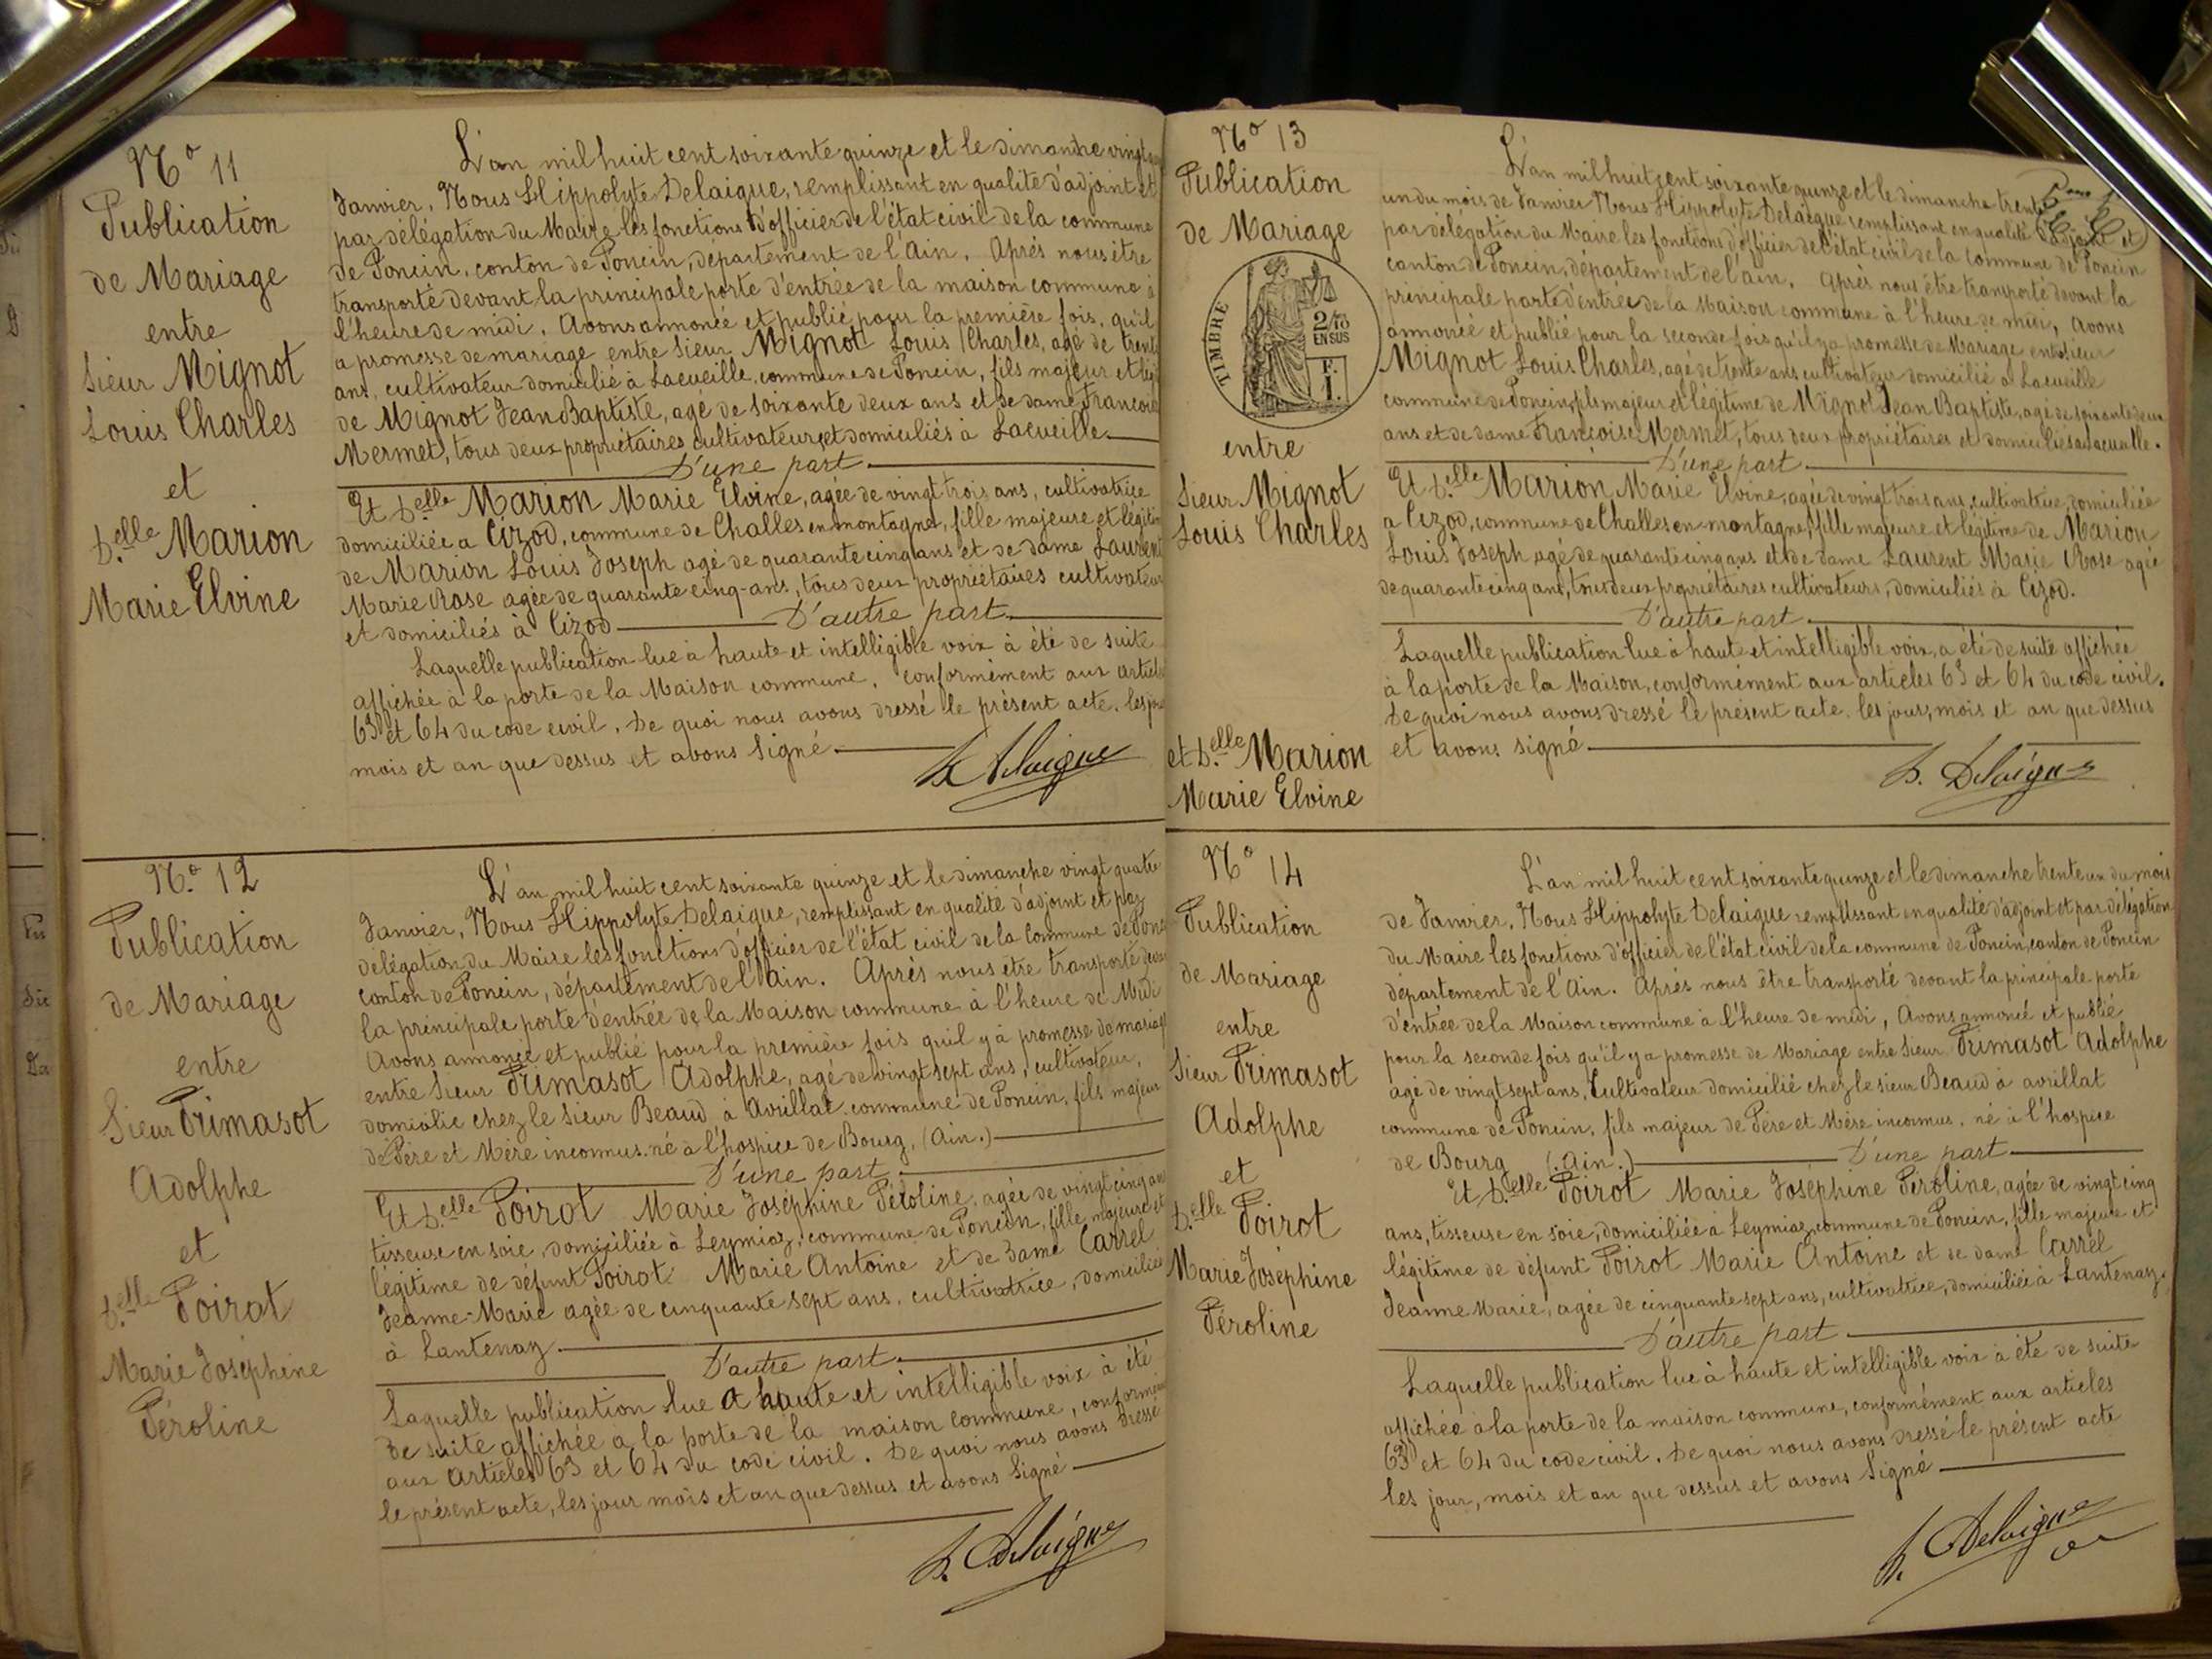 N° 11
Publication
de Mariage
entre
Sieur Mignot
Louis Charles
et
D.elle Marion
Marie Elvine
L'an mil huit cent soixante quinze et le dimanche vingt
Janvier, Nous Hippolyte Delaigue, remplissant en qualité d'adjoint et
par délégation du Maire les fonctions d'officier de l'état civil de la commune
de Poncin, conton de Poncin, département de l'Ain. Après nous être
transporté devant la principale porte d'entrée de la maison commune à
l'heure de midi. Avons annoncé et publié pour la première fois, qu'il
a promesse de mariage entre Sieur Mignot Louis Charles, agé de trente
ans, cultivateur domicilié à Lacueille, commune de Poncin, fils majeur et
de Mignot Jean Baptiste, agé de soixante deux ans et de dame Francoise
Mermet, tous deux propriétaires cultivateurs et domiciliés à Lacueille
D'une part
Et D.elle Marion Marie Elvine, agée de vingt trois ans, cultivatrice
domiciliée a Cizod, commune de Challes en montagne, fille majeure et légitime
de Marion Louis Joseph agé de quarante cinq ans et de dame Laurent
Marie Rose agée de quarante cinq-ans, tous deux propriétaires cultivateurs
et domiciliés à Cizod D'autre part
Laquelle publication lue à haute et intelligible voix à été de suite
affichée à la porte de la Maison commune, conformément aux articles
63 et 64 du code civil. De quoi nous avons dressé le présent acte, les
mois et an que dessus et avons Signé
H. Delaigue
N.° 12
Publication
de Mariage
entre
Sieur Primasot
Adolphe
et
D.elle Poirot
Marie Joséphine
Péroline
L'an mil huit cent soixante quinze et le dimanche vingt quatre
Janvier, Nous Hippolyte Delaigue, remplissant en qualité d'adjoint et par
delégation du Maire les fonctions d'officier de l'état civil de la Commune de Poncin
canton de Poncin, département de l'Ain. Après nous être transporté devant
la principale porte d'entrée de la Maison commune à l'heure de Midi
Avons annoncé et publié pour la première fois quil y à promesse de mariage
entre Sieur Primasot Adolphe, agé de vingt sept ans, cultivateur,
domicilié chez le Sieur Beaud à Avrillat commune de Poncin, fils majeur
de Père et Mère inconnus. né à l'hospice de Bourg, (Ain.)
D'une part
Et D.elle Poirot Marie Joséphine Péroline, agée de vingt cinq ans
tisseuse en soie, domiciliée à Leymiaz, commune de Poncin, fille majeure et
légitime de défunt Poirot Marie Antoine et de dame Carrel
Jeanne-Marie agée de cinquante sept ans, cultivatrice, domiciliée
à Lantenay
D'autre part
Laquelle publication lue à haute et intelligible voix à été
de suite affichée a la porte de la maison commune, conformément
aux articles 63 et 64 du code civil. De quoi nous avons dressé
le présent acte, les jour mois et an que dessus et avons Signé
H. Delaigue
N° 13
Publication
de Mariage
TIMBRE
2/10
EN SUS
F.
1.
entre
Sieur Mignot
Louis Charles
et D.elle Marion
Marie Elvine
L'an mil huit cent soixante quinze et le dimanche trente
un du mois de Janvier Nous Hippolyte Delaigue remplissant en qualité d'adjoint et
par délégation du Maire les fonctions d'officier de l'état civil de la commune de Poncin
canton de Poncin, département de l'ain. Après nous être transporté devant la
principale porte d'entrée de la Maison commune à l'heure de midi, avons
annoncé et publié pour la seconde fois qu'il y a promesse de Mariage entre sieur
Mignot Louis Charles, agé de trente ans cultivateur domicilié a Lacueille
commune de Poncin, fils majeur et légitime de Mignot Jean Baptiste, agé de soixante deux
ans et de dame Francoise Mermet, tous deux propriétaires et domiciliés à Lacueille.
D'une part
Et D.elle Marion Marie Elvine, agée de vingt trois ans, cultivatrice, domiciliée
a Cizod, commune de Challes en montagne, fille majeure et légitime de Marion
Louis Joseph agé de quarante cinq ans et de dame Laurent Marie Rose agée
de quarante cinq ans, tous deux propriétaires cultivateurs, domiciliés à Cizod.
D'autre part
Laquelle publication lue à haute et intelligible voix, a été de suite affichée
à la porte de la Maison, conformément aux articles 63 et 64 du code civil.
De quoi nous avons dressé le présent acte. les jour, mois et an que dessus
et avons signé
H. Delaigue
N° 14
Publication
de Mariage
entre
Sieur Primasot
Adolphe
et
D.elle Poirot
Marie Joséphine
Péroline
L'an mil huit cent soixante quinze et le dimanche trente un du mois
de Janvier, Nous Hippolyte Delaigue remplissant en qualité d'adjoint et par délégation
du Maire les fonctions d'officier de l'état civil de la commune de Poncin, canton de Poncin
département de l'Ain. Après nous être transporté devant la principale porte
d'entrée de la Maison commune à l'heure de midi, Avons annoncé et publié
pour la seconde fois qu'il y a promesse de Mariage entre Sieur Primasot Adolphe
agé de vingt sept ans, Cultivateur domicilié chez le sieur Beaud à avrillat
commune de Poncin, fils majeur de Père et Mère inconnus, né à l'hospice
de Bourg (Ain.) D'une part
Et D.elle Poirot Marie Joséphine Péroline, agée de vingt cinq
ans, tisseuse en soie, domiciliée à Leymiaz, commune de Poncin, fille majeure et
légitime de défunt Poirot Marie Antoine et de dame Carrel
Jeanne Marie, agée de cinquante sept ans, cultivatrice, domiciliée à Lantenay.
D'autre part
Laquelle publication lue à haute et intelligible voix à été de suite
affichée à la porte de la maison commune, conformément aux articles
63 et 64 du code civil. De quoi nous avons dressé le présent acte
les jour, mois et an que dessus et avons Signé
H. Delaigue